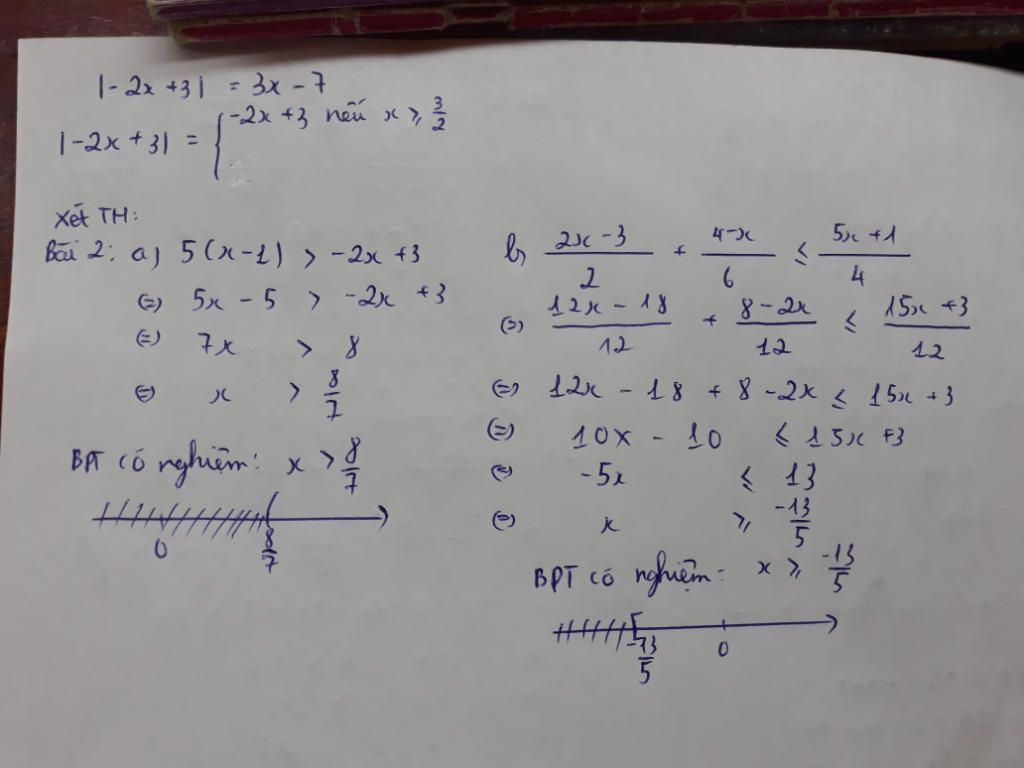 |-2x+3| = 3x-7
|-2x+3| = { -2x+3 nếu x ⩾ 3/2
Xét TH:
Bài 2: a) 5(x-1) > -2x+3
(=) 5x - 5 > -2x + 3
(=) 7x > 8
(=) x > 8/7
BPT có nghiệm: x > 8/7
0 8/7
b) (2x-3)/2 + (4-x)/6 ≤ (5x+1)/4
(=) (12x-18)/12 + (8-2x)/12 ≤ (15x+3)/12
(=) 12x - 18 + 8 - 2x ≤ 15x + 3
(=) 10x - 10 ≤ 15x + 3
(=) -5x ≤ 13
(=) x ⩾ -13/5
BPT có nghiệm: x ⩾ -13/5
-13/5 0